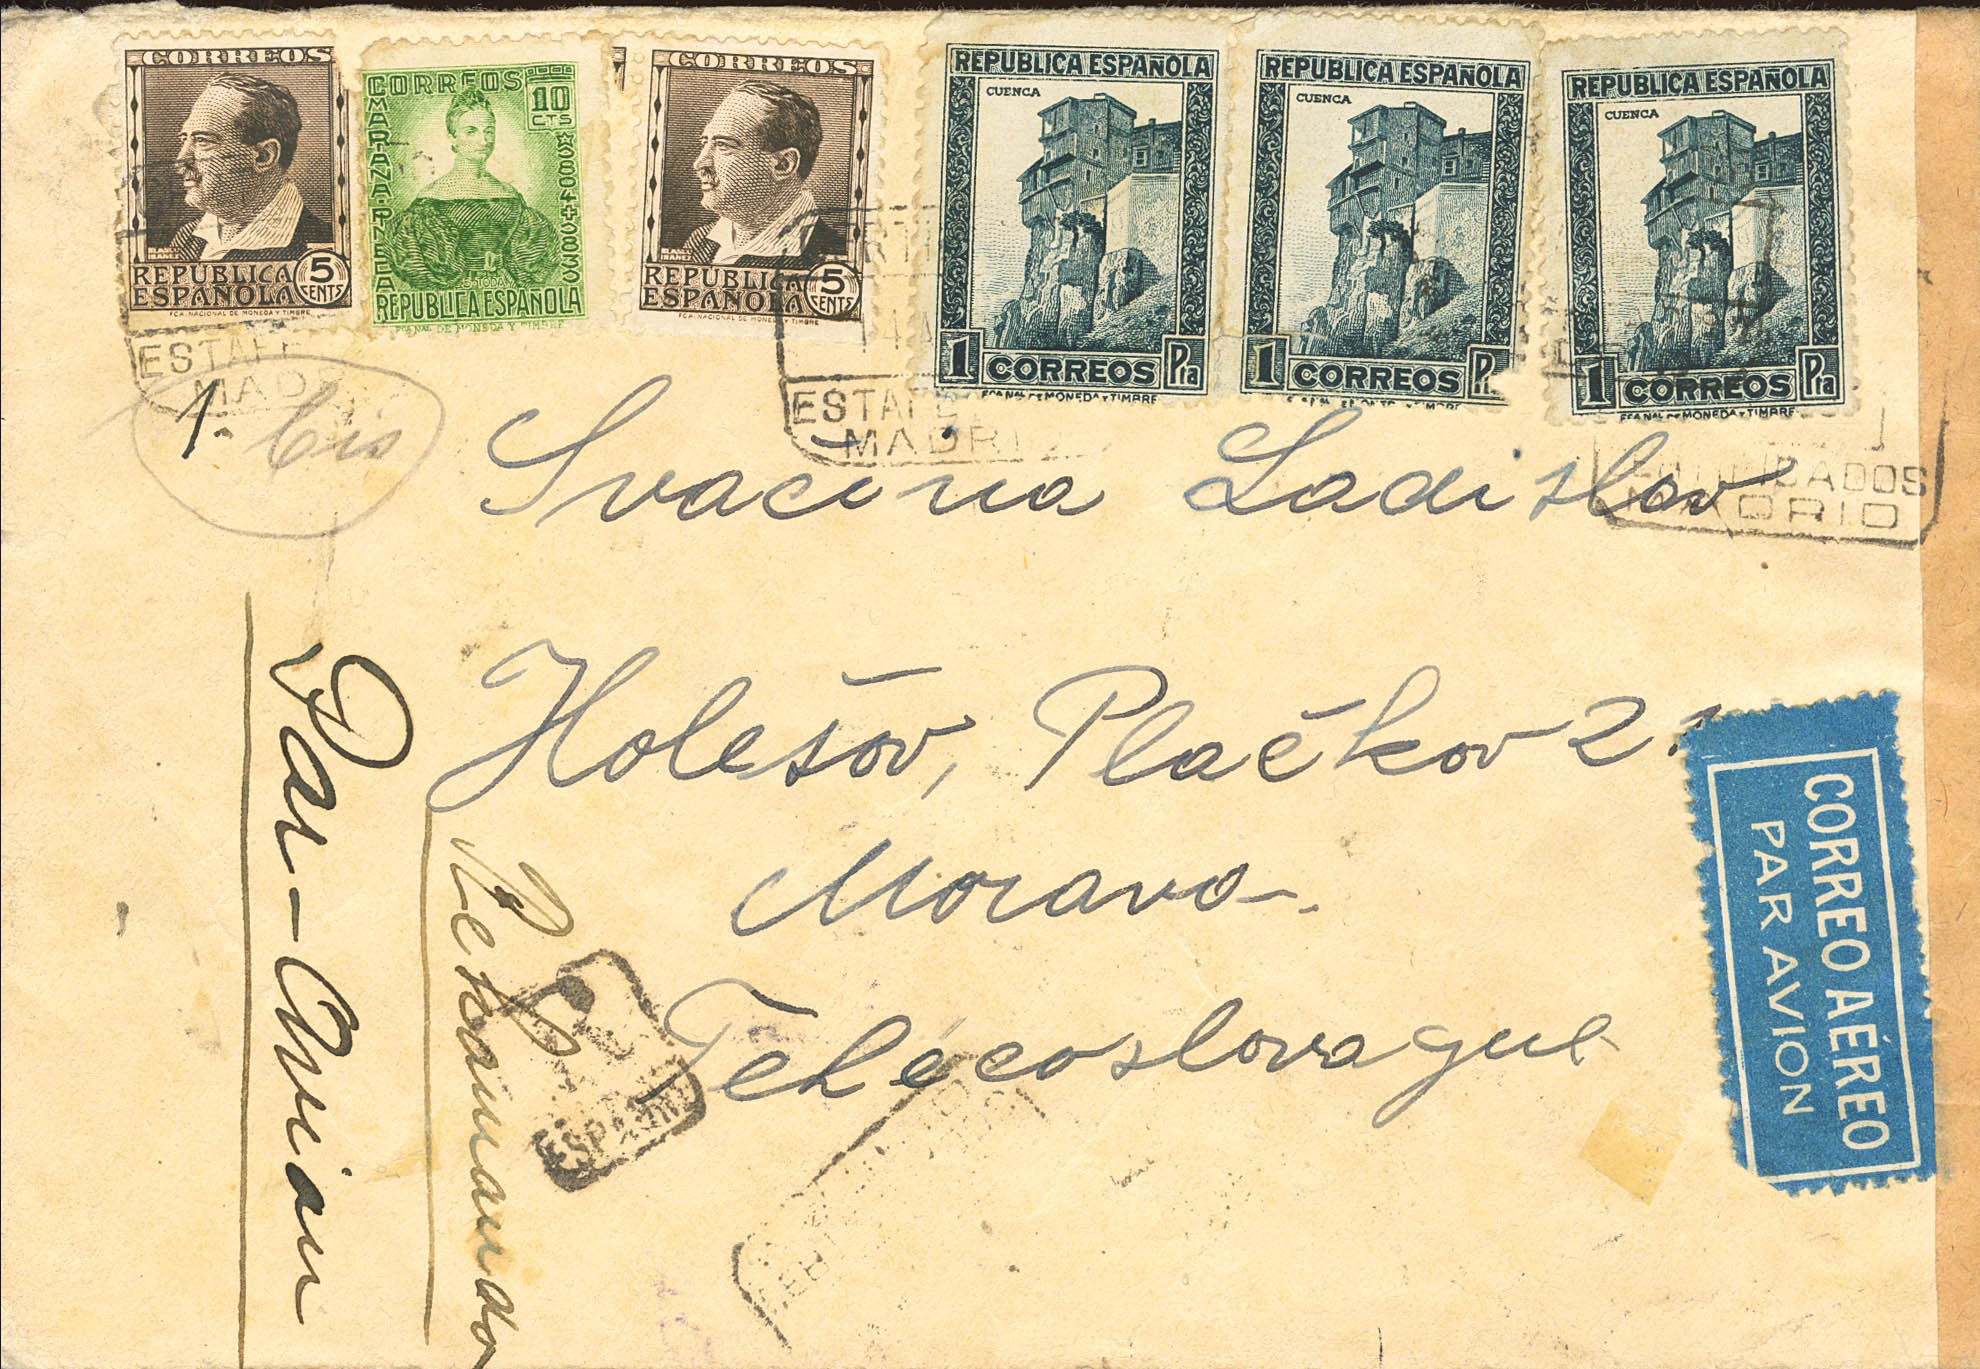 CORREOS
BLASCO IBAÑEZ
REPUBLICA
ESPAÑOLA 5 CENTS
FCA. NACIONAL DE MONEDA Y TIMBRE
CORREOS 10 CTS
MARIANA·PINEDA
REPUBLICA ESPAÑOLA
CORREOS
REPUBLICA
ESPAÑOLA 5 CENTS
FCA. NACIONAL DE MONEDA Y TIMBRE
REPUBLICA ESPAÑOLA
CUENCA
1 CORREOS Pta
FCA NAL DE MONEDA Y TIMBRE
REPUBLICA ESPAÑOLA
CUENCA
1 CORREOS
REPUBLICA ESPAÑOLA
CUENCA
1 CORREOS Pta
FCA NAL DE MONEDA Y TIMBRE
ESTAFE
MAD
ESTAFE
MADRI
MADRID
1. bis
Svacina Ladislav
Holešov, Plačkov 21
Morava.
Tchécoslovaque
Par-Avion
Rekomando
ESPAÑA
CORREO AÉREO
PAR AVION